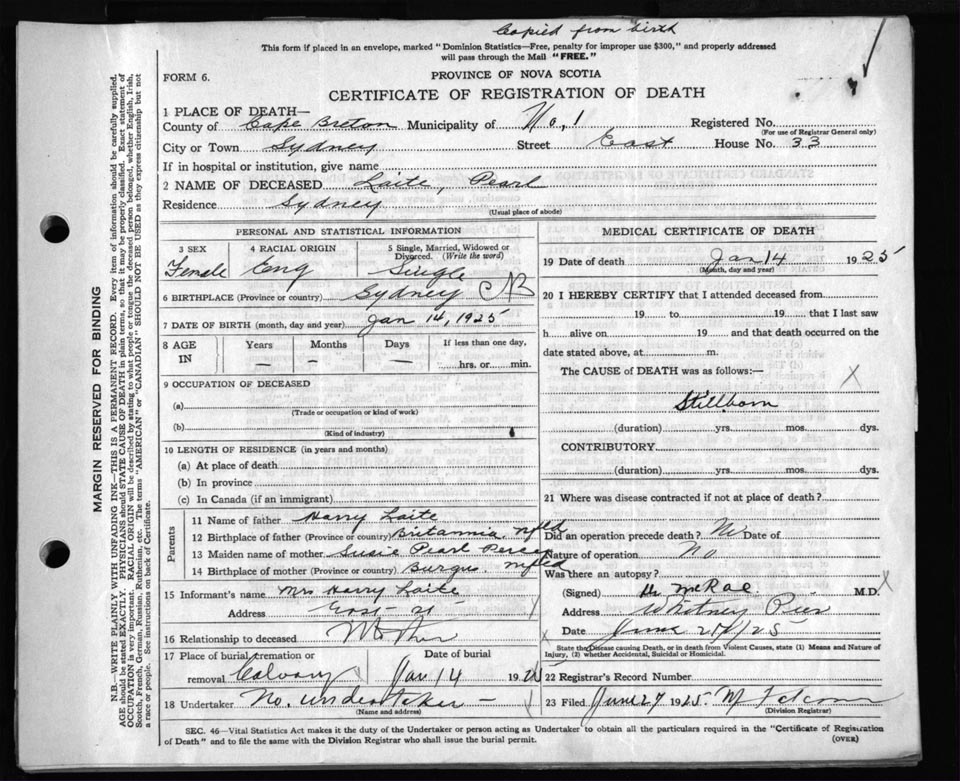 Copied from birth
This form if placed in an envelope, marked "Dominion Statistics—Free, penalty for improper use $300," and properly addressed
will pass through the Mail "FREE."
FORM 6.
PROVINCE OF NOVA SCOTIA
CERTIFICATE OF REGISTRATION OF DEATH
1 PLACE OF DEATH—
County of Cape Breton Municipality of No. 1 Registered No.
(For use of Registrar General only)
City or Town Sydney Street East House No. 33
If in hospital or institution, give name
2 NAME OF DECEASED Laite, Pearl
Residence Sydney
(Usual place of abode)
PERSONAL AND STATISTICAL INFORMATION
3 SEX 4 RACIAL ORIGIN 5 Single, Married, Widowed or
Divorced. (Write the word)
Female Eng Single
6 BIRTHPLACE (Province or country) Sydney CB
7 DATE OF BIRTH (month, day and year) Jan 14, 1925
8 AGE IN Years Months Days If less than one day,
— — — hrs. or min.
9 OCCUPATION OF DECEASED
(a)
(Trade or occupation or kind of work)
(b)
(Kind of industry)
10 LENGTH OF RESIDENCE (in years and months)
(a) At place of death
(b) In province
(c) In Canada (if an immigrant)
Parents
11 Name of father Harry Laite
12 Birthplace of father (Province or country) Britannia. Nfld
13 Maiden name of mother Susie Pearl
14 Birthplace of mother (Province or country) Burgus. Nfld
15 Informant's name Mrs Harry Laite
Address East St
16 Relationship to deceased Mother
17 Place of burial, cremation or Date of burial
removal Calvary Jan 14 192
18 Undertaker No. undertaker —
(Name and address)
MEDICAL CERTIFICATE OF DEATH
19 Date of death Jan 14 1925
(Month, day and year)
20 I HEREBY CERTIFY that I attended deceased from
19 to 19 that I last saw
h alive on 19 and that death occurred on the
date stated above, at m.
The CAUSE of DEATH was as follows:—
Stillborn
(duration) yrs. mos. dys.
CONTRIBUTORY.
(duration) yrs. mos. dys.
21 Where was disease contracted if not at place of death?
Did an operation precede death? No Date of
Nature of operation No
Was there an autopsy?
(Signed) McRae M.D.
Address Whitney Pier
Date June
State the Disease causing Death, or in death from Violent Causes, state (1) Means and Nature of
Injury, (2) whether Accidental, Suicidal or Homicidal.
22 Registrar's Record Number
23 Filed June 27 1925.
(Division Registrar)
SEC. 46—Vital Statistics Act makes it the duty of the Undertaker or person acting as Undertaker to obtain all the particulars required in the "Certificate of Registration
of Death" and to file the same with the Division Registrar who shall issue the burial permit. (OVER)
MARGIN RESERVED FOR BINDING
N.B.—WRITE PLAINLY WITH UNFADING INK—THIS IS A PERMANENT RECORD. Every item of information should be carefully supplied.
AGE should be stated EXACTLY. PHYSICIANS should STATE CAUSE OF DEATH in plain terms, so that it may be properly classified. Exact statement of
OCCUPATION is very important. RACIAL ORIGIN will be described by stating to what people or tongue the deceased person belonged, whether English, Irish,
Scotch, French, German, Russian, Ruthenian, etc. The terms "AMERICAN" or "CANADIAN" SHOULD NOT BE USED as they express citizenship but not
a race or people. See instructions on back of Certificate.